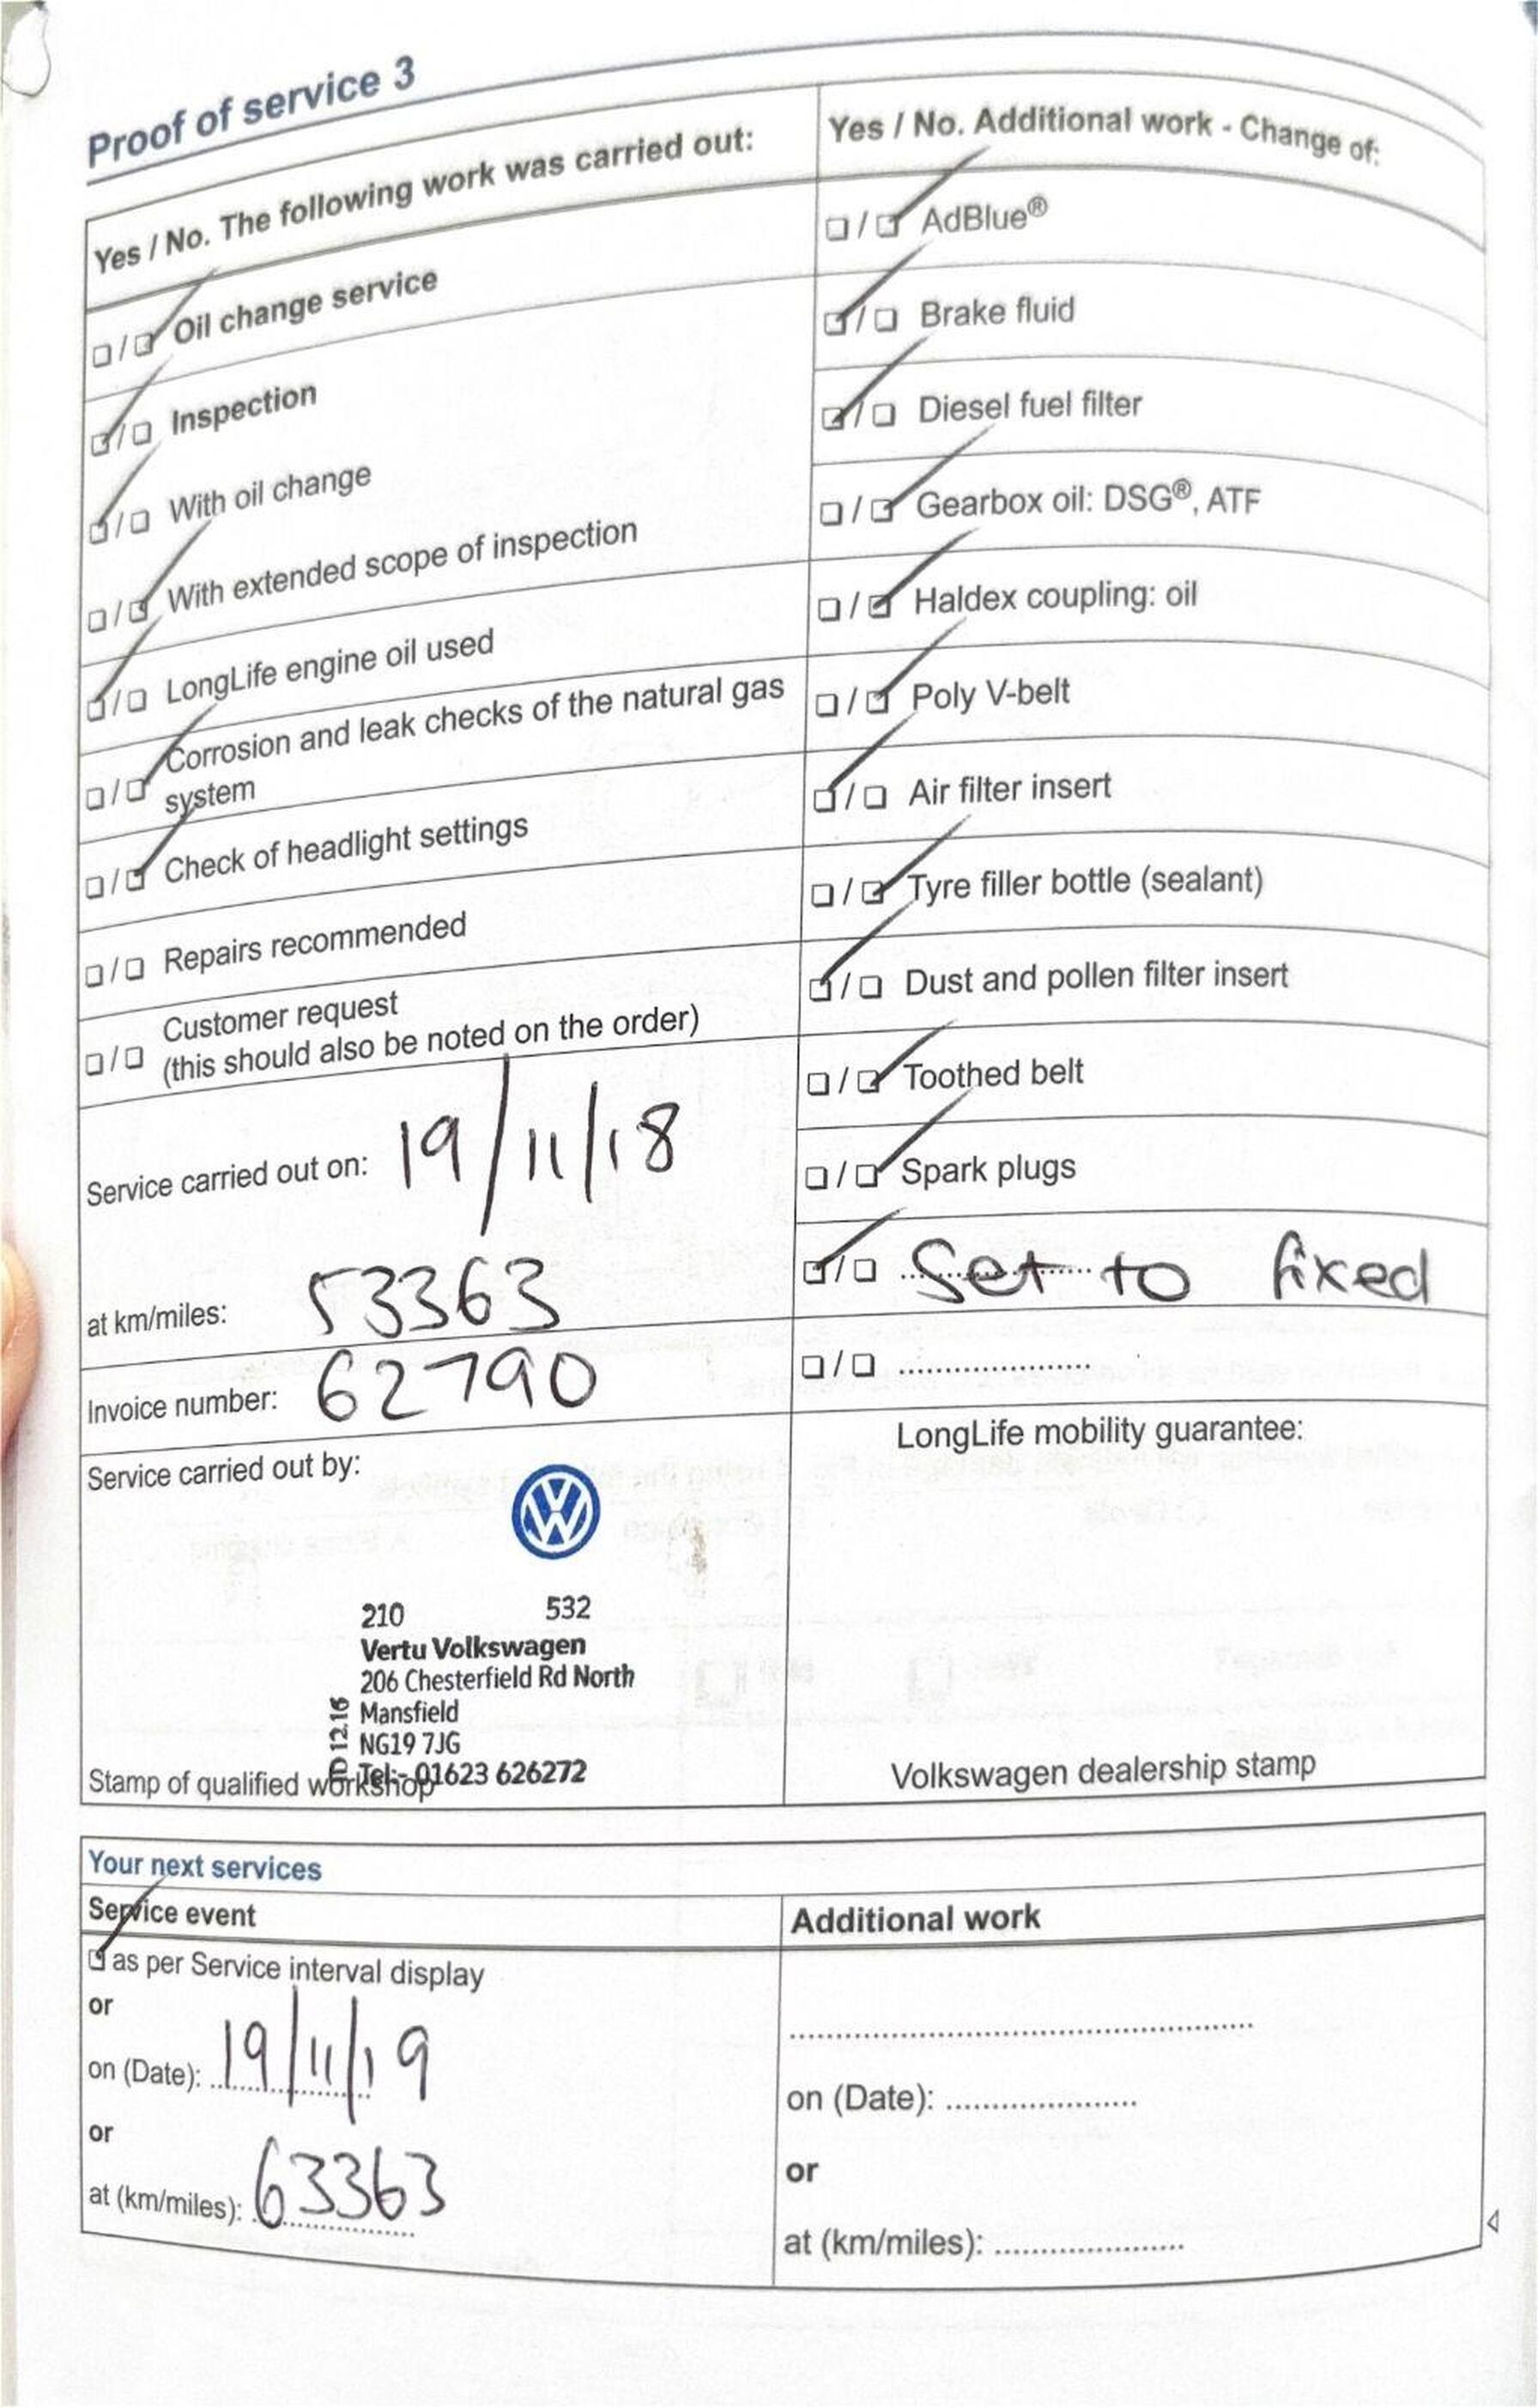 Proof of service 3
Yes / No. The following work was carried out:
☐/☑ Oil change service
☑/☐ Inspection
☑/☐ With oil change
☐/☑ With extended scope of inspection
☑/☐ LongLife engine oil used
☐/☑ Corrosion and leak checks of the natural gas
system
☐/☑ Check of headlight settings
☐/☐ Repairs recommended
☐/☐ Customer request
(this should also be noted on the order)
Service carried out on: 19/11/18
at km/miles: 53363
Invoice number: 62790
Service carried out by:
VW
210 532
Vertu Volkswagen
206 Chesterfield Rd North
Mansfield
NG19 7JG
Tel:- 01623 626272
12.16
Stamp of qualified workshop
Yes / No. Additional work - Change of:
☐/☑ AdBlue®
☑/☐ Brake fluid
☑/☐ Diesel fuel filter
☐/☑ Gearbox oil: DSG®, ATF
☐/☑ Haldex coupling: oil
☐/☑ Poly V-belt
☑/☐ Air filter insert
☐/☑ Tyre filler bottle (sealant)
☑/☐ Dust and pollen filter insert
☐/☑ Toothed belt
☐/☑ Spark plugs
☑/☐ Set to fixed
☐/☐ .....................
LongLife mobility guarantee:
Volkswagen dealership stamp
Your next services
Service event
☑ as per Service interval display
or
on (Date): 19/11/19
or
at (km/miles): 63363
Additional work
..................................................
on (Date): .....................
or
at (km/miles): .....................